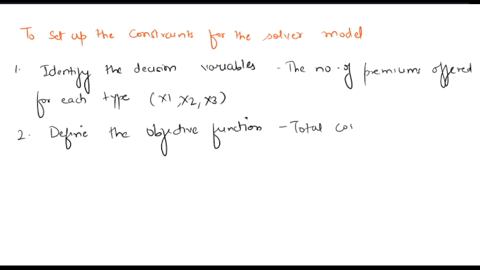 To set up the constraints for the solver model
1. Identify the decision variables - The no. of premiums offered
for each type (x1, x2, x3)
2. Define the objective function - Total cos